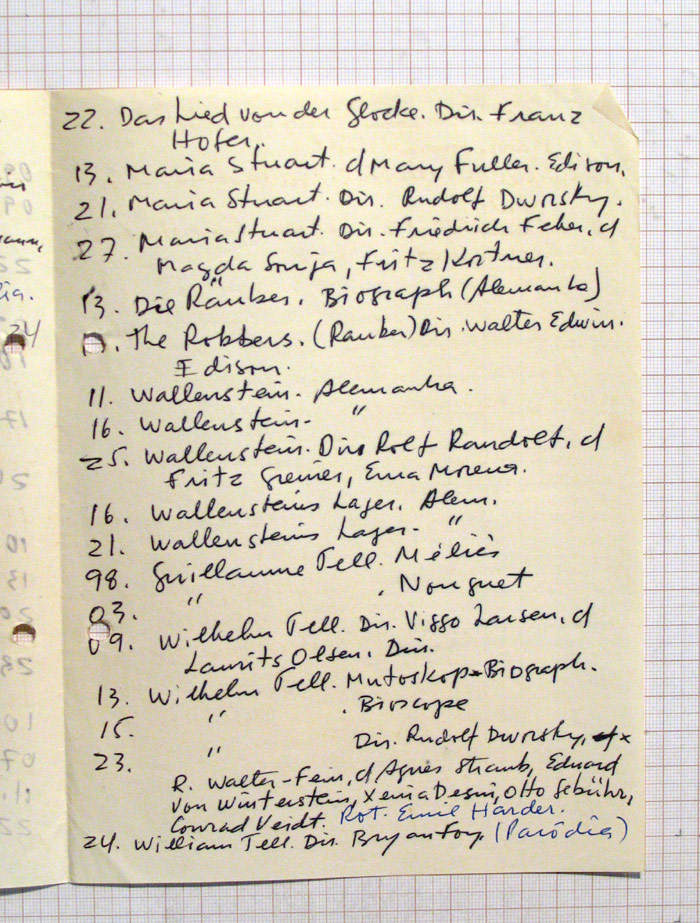 22. Das Lied von der Glocke. Dir. Franz
Hofer.
13. Maria Stuart. d Mary Fuller. Edison.
21. Maria Stuart. Dir. Rudolf Dworsky.
27. Maria Stuart. Dir. Friedrich Feher, d
Magda Sonja, Fritz Kortner.
13. Die Räuber. Biograph (Alemanha)
The Robbers. (Räuber) Dir. Walter Edwin.
Edison.
11. Wallenstein. Alemanha.
16. Wallenstein. "
25. Wallenstein. Dir. Rolf Randolf, d
Fritz Greiner, Erna Morena.
16. Wallensteins Lager. Alem.
21. Wallensteins Lager. "
98. Guillaume Tell. Méliès
03. " . Nonguet
09. Wilhelm Tell. Dir. Viggo Larsen, d
Laurits Olsen. Din.
13. Wilhelm Tell. Mutoskop-Biograph.
15. " . Bioscope
23. " Dir. Rudolf Dworsky,
R. Walter-Fein, d Agnes Straub, Eduard
von Winterstein, Xenia Desni, Otto Gebühr,
Conrad Veidt. Rot. Emil Harder.
24. William Tell. Dir. Bryan Foy. (Paródia)
24